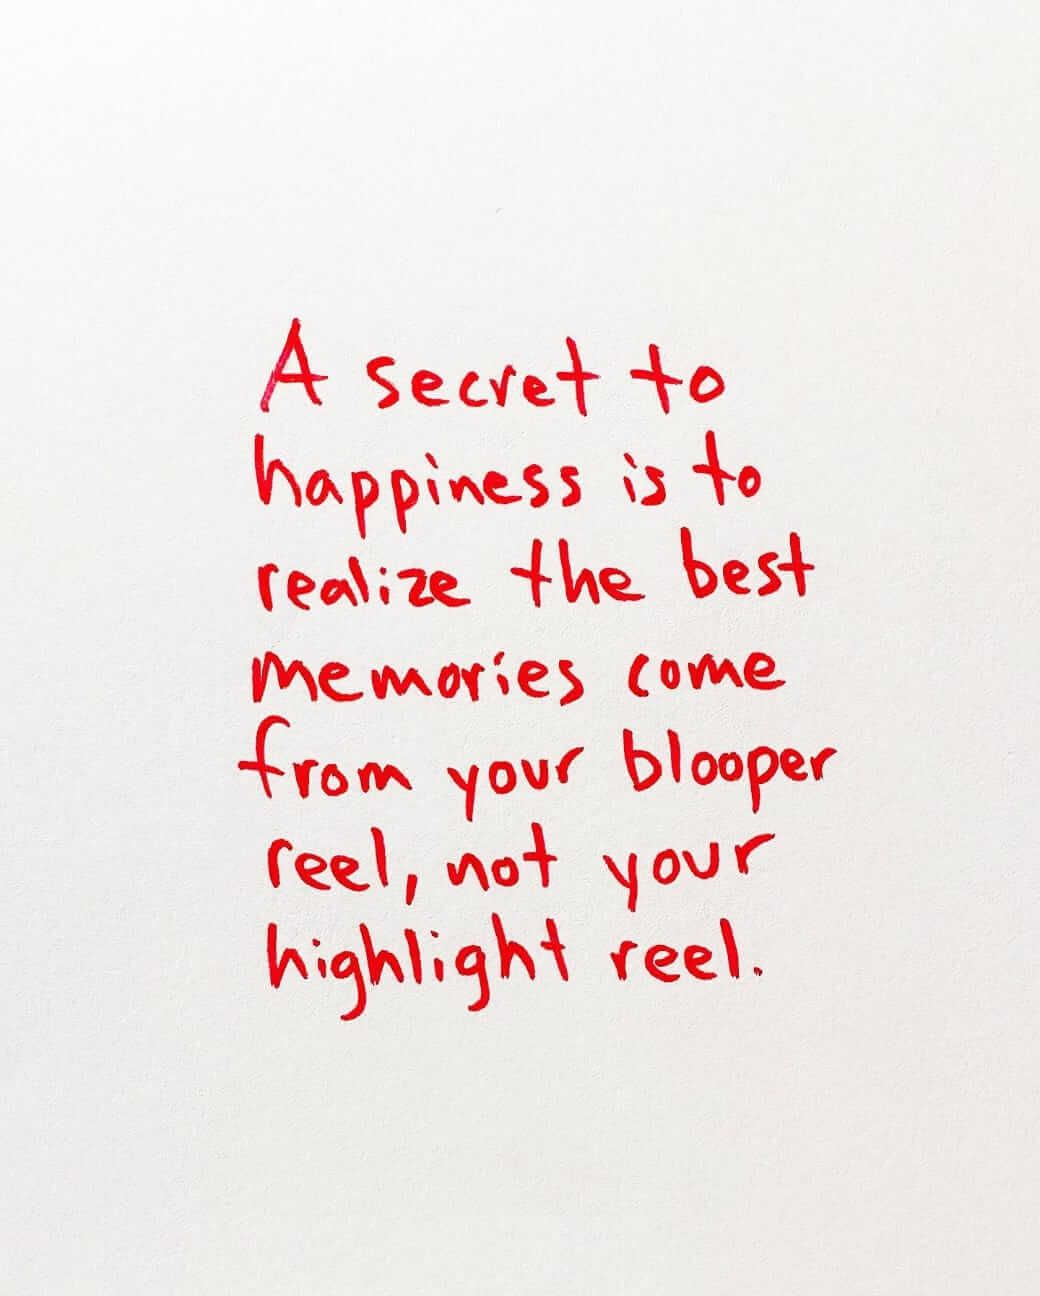 A secret to
happiness is to
realize the best
memories come
from your blooper
reel, not your
highlight reel.